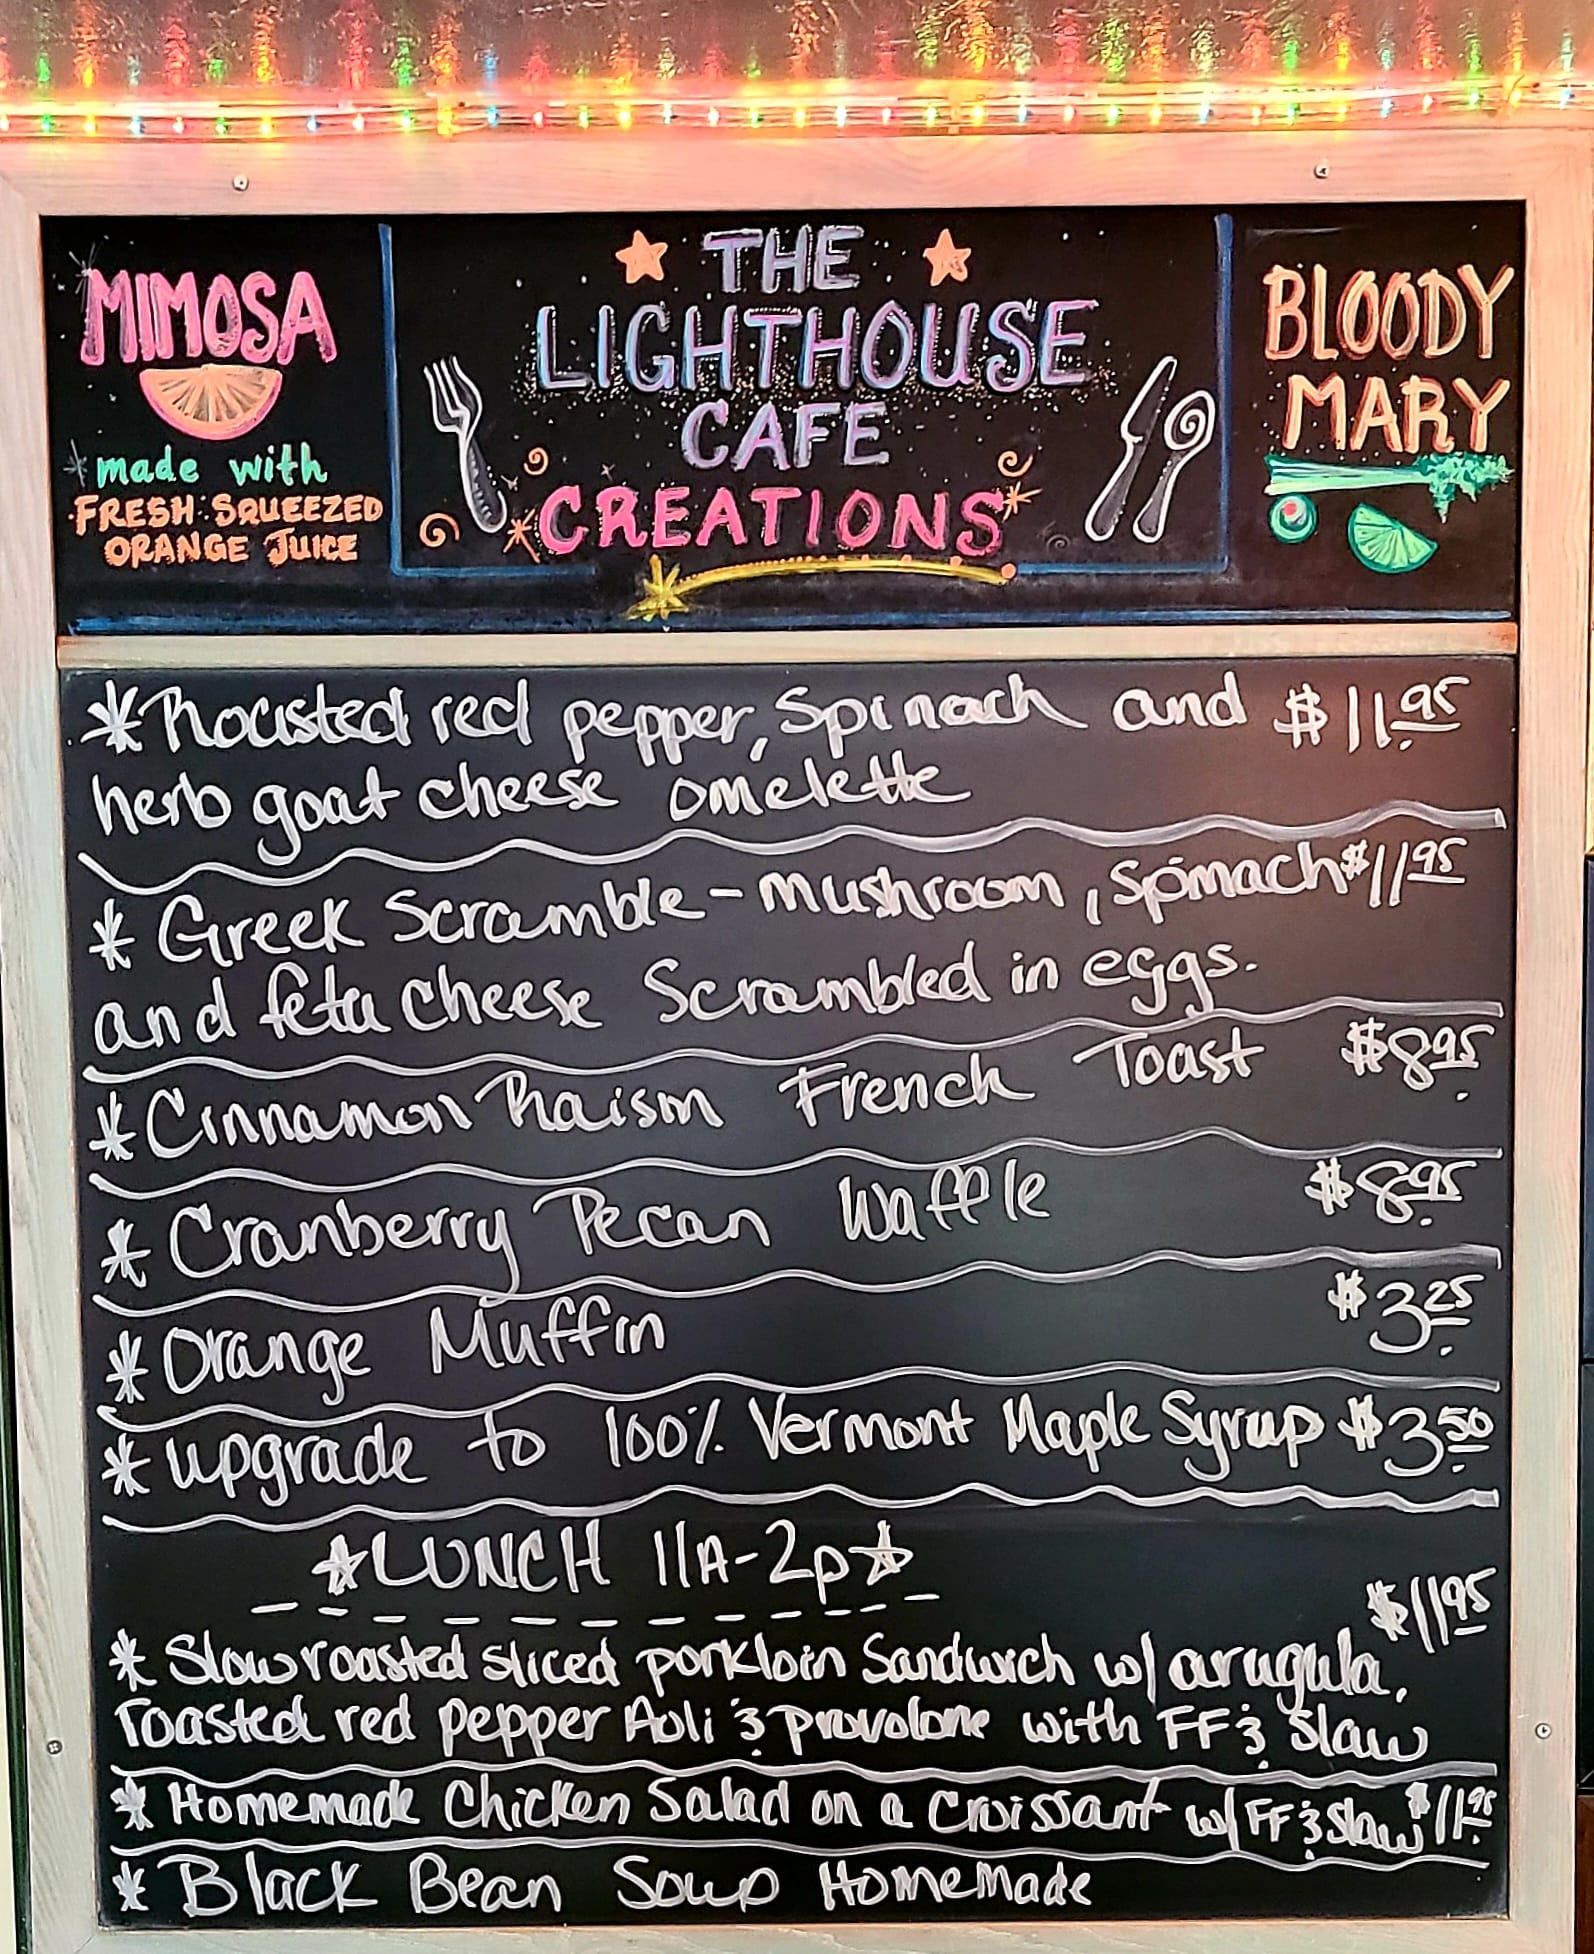 MIMOSA
made with
FRESH SQUEEZED
ORANGE JUICE
THE
LIGHTHOUSE
CAFE
CREATIONS
BLOODY
MARY
*Roasted red pepper, Spinach and $11.95
herb goat cheese omelette
* Greek Scramble - mushroom, Spinach $11.95
and feta cheese Scrambled in eggs.
*Cinnamon Raisin French Toast $8.95
*Cranberry Pecan Waffle $8.95
*Orange Muffin $3.25
*upgrade to 100% Vermont Maple Syrup $3.50
☆LUNCH 11A-2p☆
$11.95
* Slow roasted sliced porkloin Sandwich w/ arugula,
roasted red pepper Aoli & provolone with FF & Slaw
*Homemade Chicken Salad on a Croissant w/ FF & Slaw $11.95
* Black Bean Soup Homemade